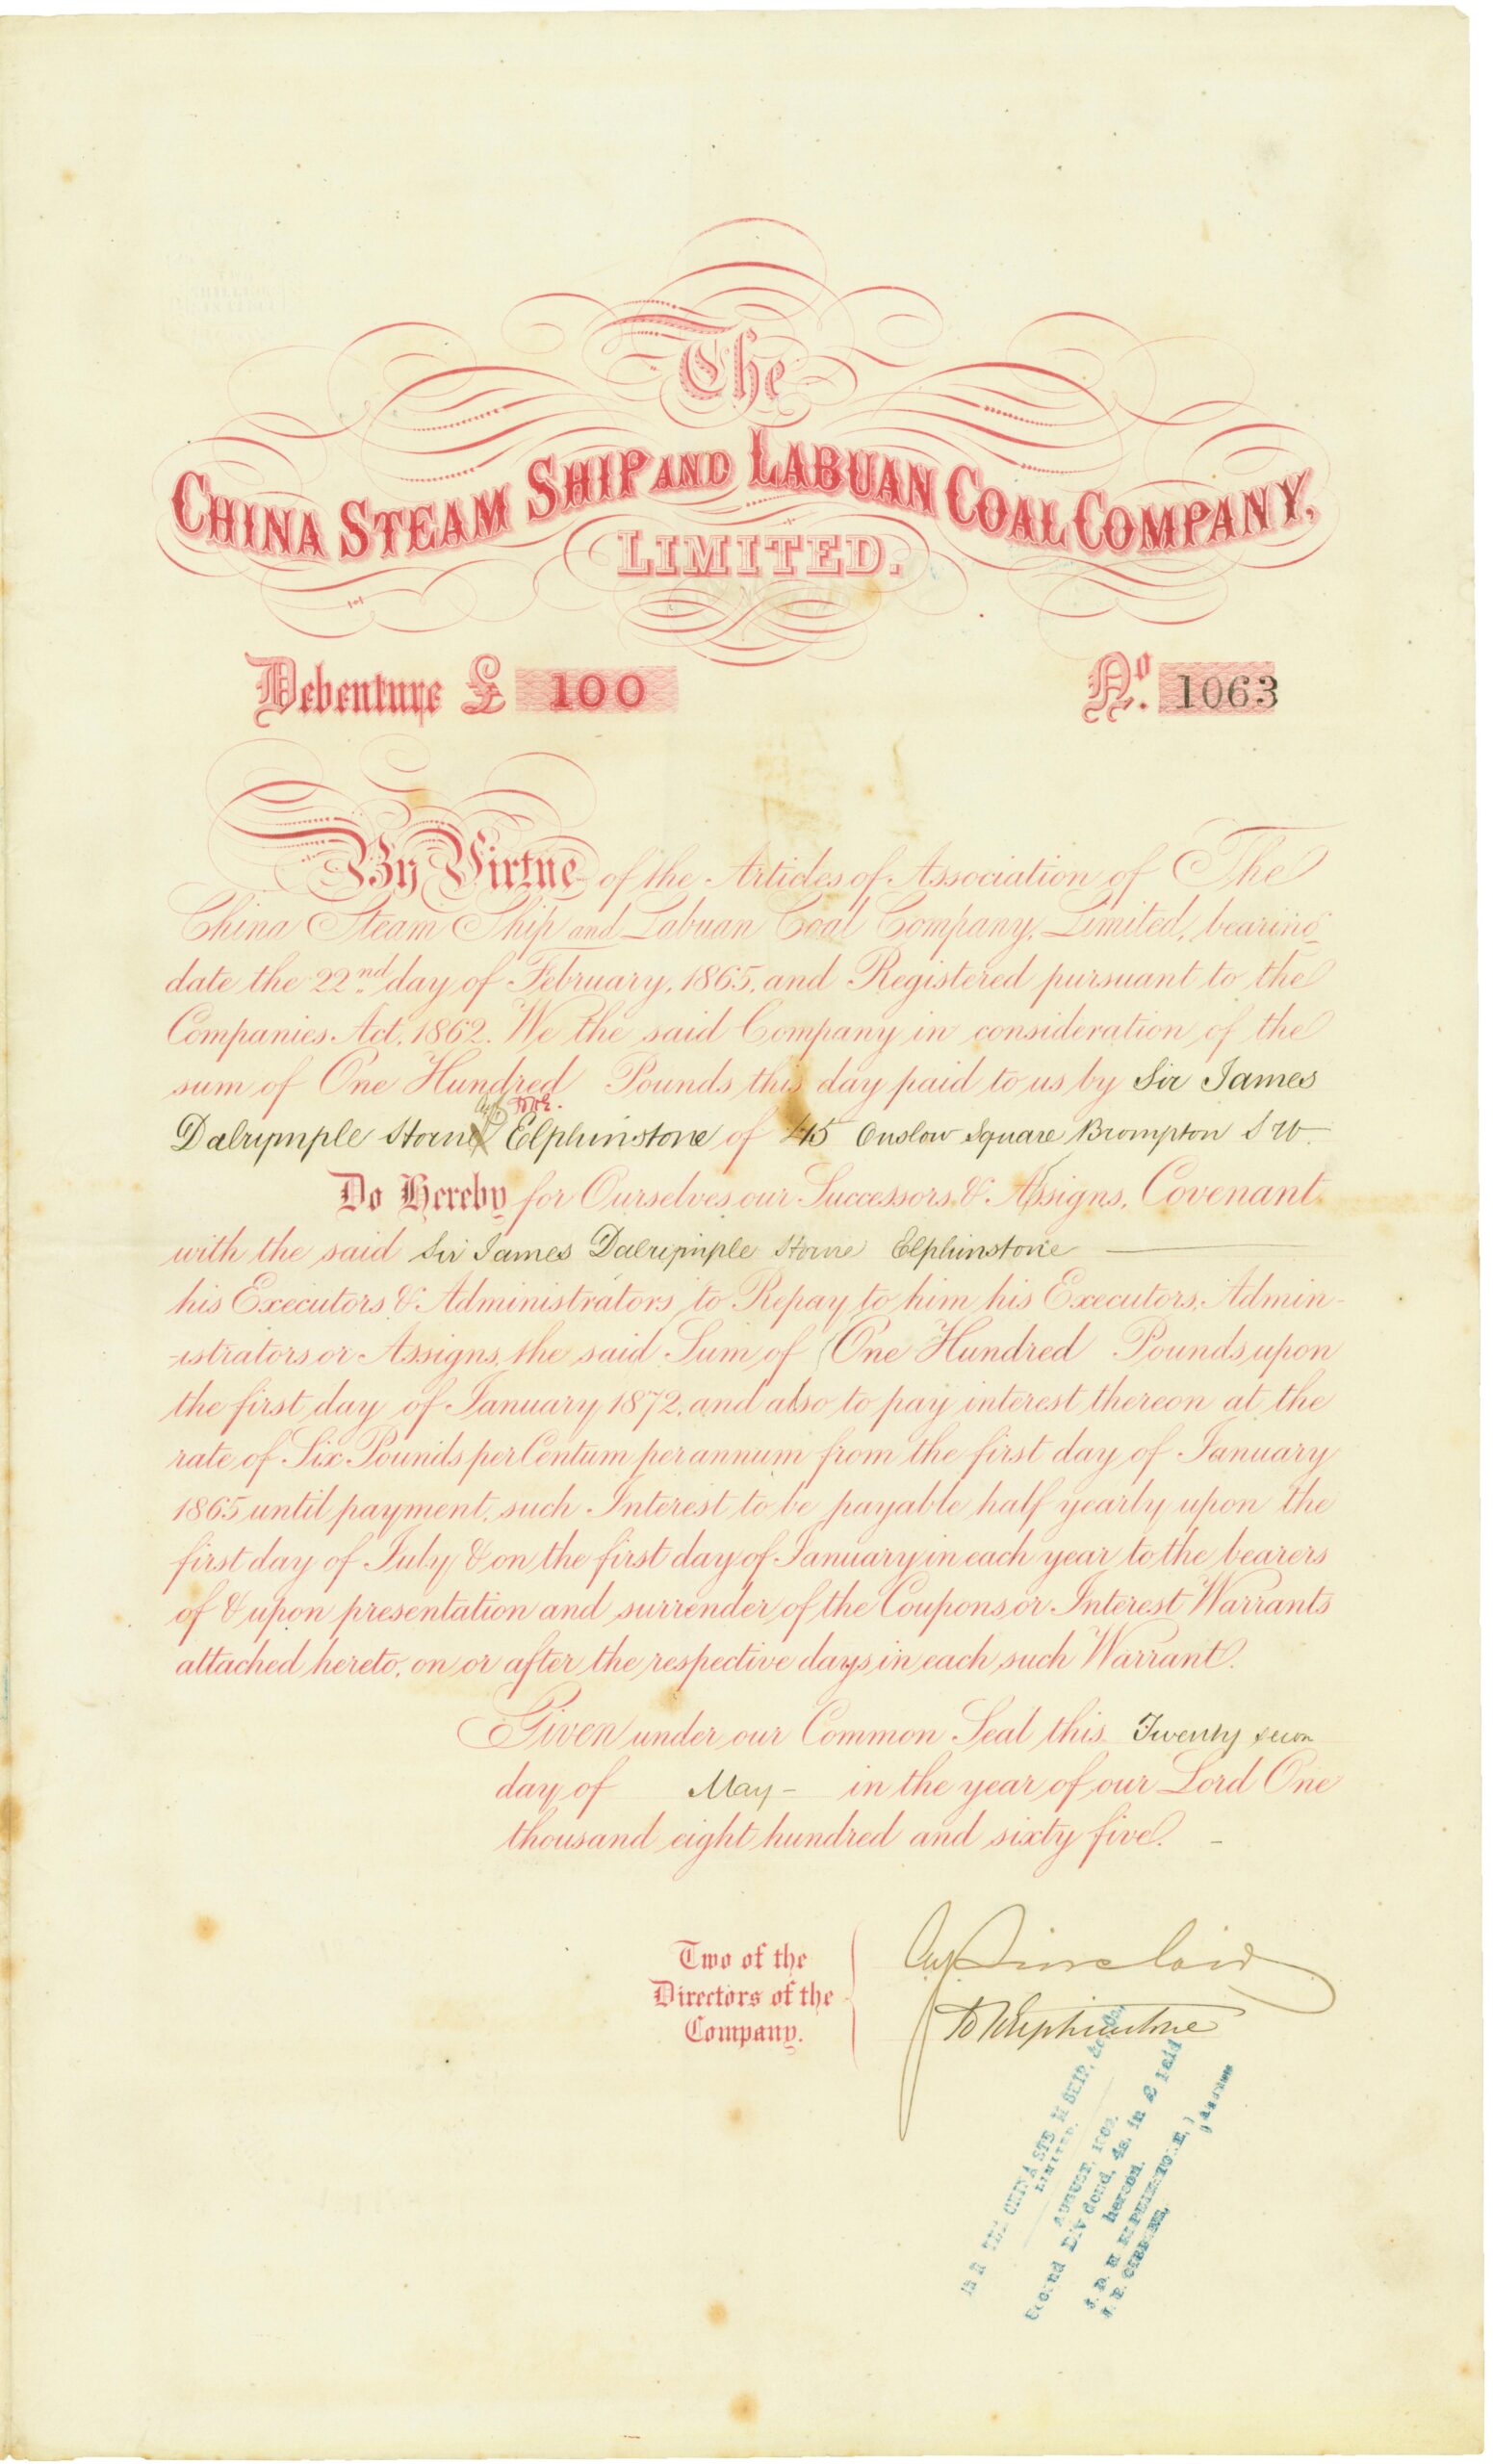 The
CHINA STEAM SHIP AND LABUAN COAL COMPANY,
LIMITED.
Debenture £ 100 No. 1063
By Virtue of the Articles of Association of The
China Steam Ship and Labuan Coal Company, Limited, bearing
date the 22nd day of February, 1865, and Registered pursuant to the
Companies Act, 1862. We the said Company in consideration of the
sum of One Hundred Pounds this day paid to us by Sir James
Dalrymple Horne Elphinstone of 45 Onslow Square Brompton S W.
Do Hereby for Ourselves our Successors & Assigns, Covenant
with the said Sir James Dalrymple Horne Elphinstone
his Executors & Administrators to Repay to him his Executors, Admin-
-istrators or Assigns, the said Sum of One Hundred Pounds upon
the first day of January 1872, and also to pay interest thereon at the
rate of Six Pounds per Centum per annum from the first day of January
1865 until payment, such Interest to be payable half yearly upon the
first day of July & on the first day of January in each year to the bearers
of & upon presentation and surrender of the Coupons or Interest Warrants
attached hereto, on or after the respective days in each such Warrant.
Given under our Common Seal this Twenty secon
day of May - in the year of our Lord One
thousand eight hundred and sixty five.
Two of the
Directors of the
Company.
Sinclair
Elphinstone
THE CHINA STEAM SHIP, &c.
LIMITED.
AUGUST,
Second Dividend, 4s. in £ paid
hereon.
J. D. H. ELPHINSTONE,